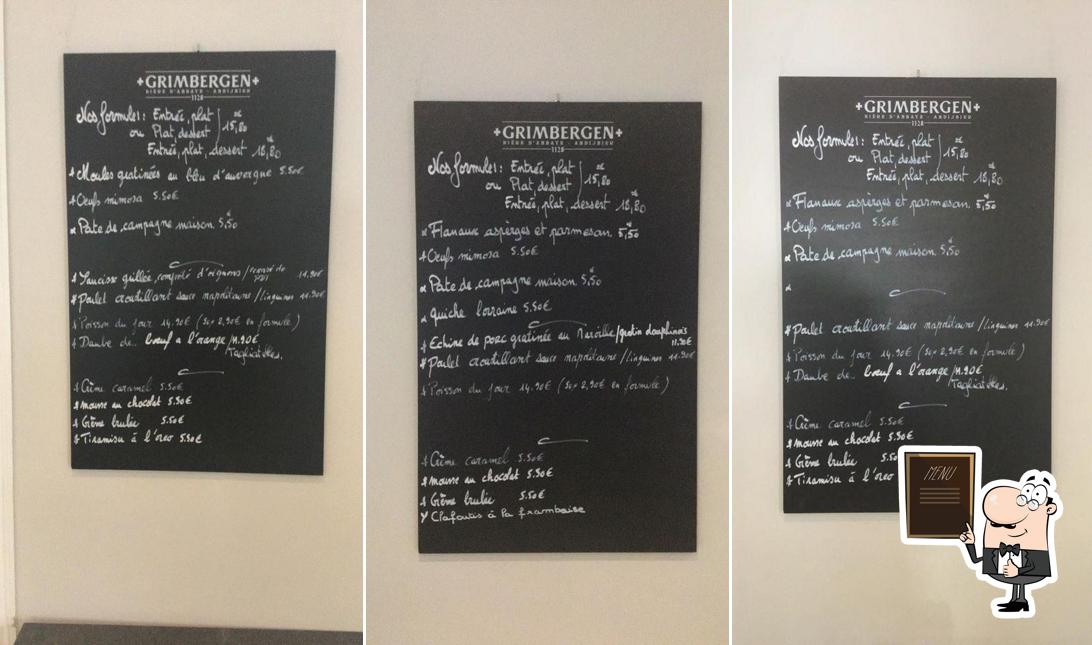 GRIMBERGEN
BIÈRE D'ABBAYE - ABDIJBIER
1128
Nos formules: Entrée, plat
ou Plat, dessert 15,80
Entrée, plat, dessert 18,80
Moules gratinées au bleu d'auvergne 5.50€
Oeufs mimosa 5.50€
Pate de campagne maison 5,50
Saucisse grillée, compoté d'oignons / 11.90€
Poulet croustillant sauce napolitaine / linguines 11.90€
Poisson du jour 14.90€ (sup 2,90€ en formule)
Daube de.. bœuf a l'orange / 11.90€
Tagliatelles.
Crème caramel 5.50€
mousse au chocolat 5.50€
Crème brulée 5.50€
Tiramisu à l'oreo 5.50€
GRIMBERGEN
BIÈRE D'ABBAYE - ABDIJBIER
1128
Nos formules: Entrée, plat
ou Plat, dessert 15,80
Entrée, plat, dessert 18,80
Flanaux asperges et parmesan 5,50
Oeufs mimosa 5.50€
Pate de campagne maison 5,50
quiche lorraine 5.50€
Echine de porc gratinée au Maroille / gratin dauphinois
11.90€
Poulet croustillant sauce napolitaine / linguines 11.90€
Poisson du jour 14.90€ (sup 2,90€ en formule)
Crème caramel 5.50€
mousse au chocolat 5.50€
Crème brulée 5.50€
Clafoutis à la framboise
GRIMBERGEN
BIÈRE D'ABBAYE - ABDIJBIER
1128
Nos formules: Entrée, plat
ou Plat, dessert 15,80
Entrée, plat, dessert 18,80
Flanaux asperges et parmesan 5,50
Oeufs mimosa 5.50€
Pate de campagne maison 5,50
Poulet croustillant sauce napolitaine / linguines 11.90€
Poisson du jour 14.90€ (sup 2,90€ en formule)
Daube de.. bœuf a l'orange / 11.90€
Tagliatelles.
Crème caramel 5.50€
mousse au chocolat 5.50€
Crème brulée 5.50
Tiramisu à l'oreo
MENU